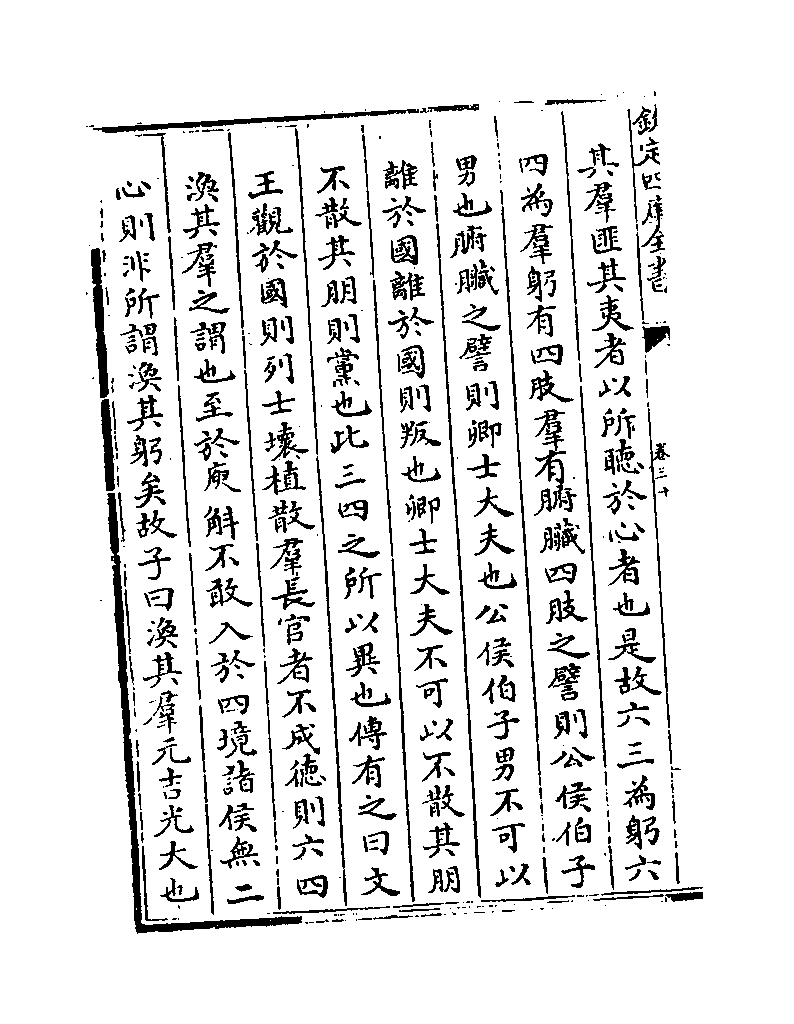 欽定四庫全書
卷三十
其羣匪其夷者以所聽於心者也是故六三為躬六
四為羣躬有四肢羣有腑臟四肢之譬則公侯伯子
男也腑臟之譬則卿士大夫也公侯伯子男不可以
離於國離於國則叛也卿士大夫不可以不散其朋
不散其朋則黨也此三四之所以異也傳有之曰文
王觀於國則列士壞植散羣長官者不成徳則六四
渙其羣之謂也至於庾斛不敢入於四境諸侯無二
心則非所謂渙其躬矣故子曰渙其羣元吉光大也